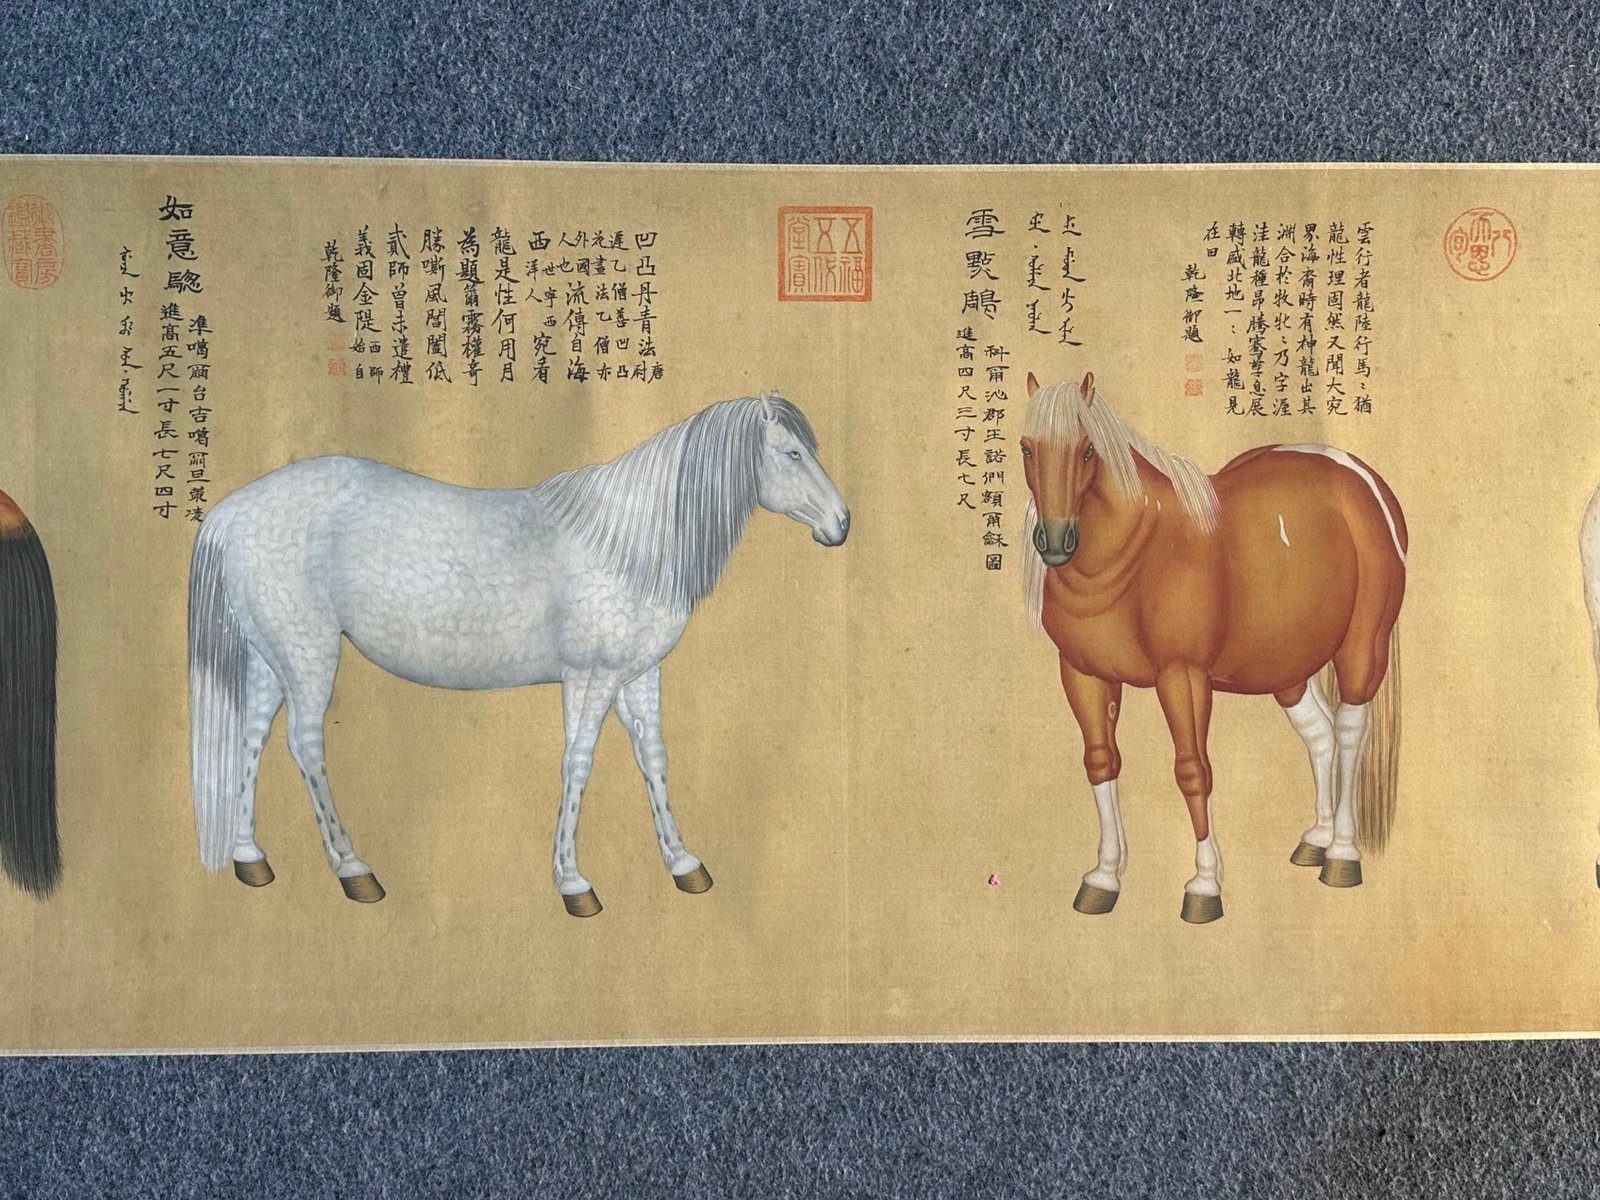 雲行者龍陸行馬〻猶
龍性理固然又聞大宛
界海裔時有神龍出其
洲合於牧牝〻乃字渥
洼龍種昂騰騫孳息展
轉盛北地一〻如龍見
在田
乾隆御題
雪點鵰
科爾沁郡王諾們額爾龢圖
進高四尺三寸長七尺
五福五代堂寶
凹凸丹青法唐尉
遲乙僧善凹凸
花畫法乙僧亦
外國流傳自海
人也
西世寧西洋人宛看
龍是性何用月
為題籋霧權奇
勝嘶風閶闔低
貳師曾未遣禮
義固金隄西師始自
乾隆御題
如意驄
準噶爾台吉噶爾旦策凌
進高五尺一寸長七尺四寸